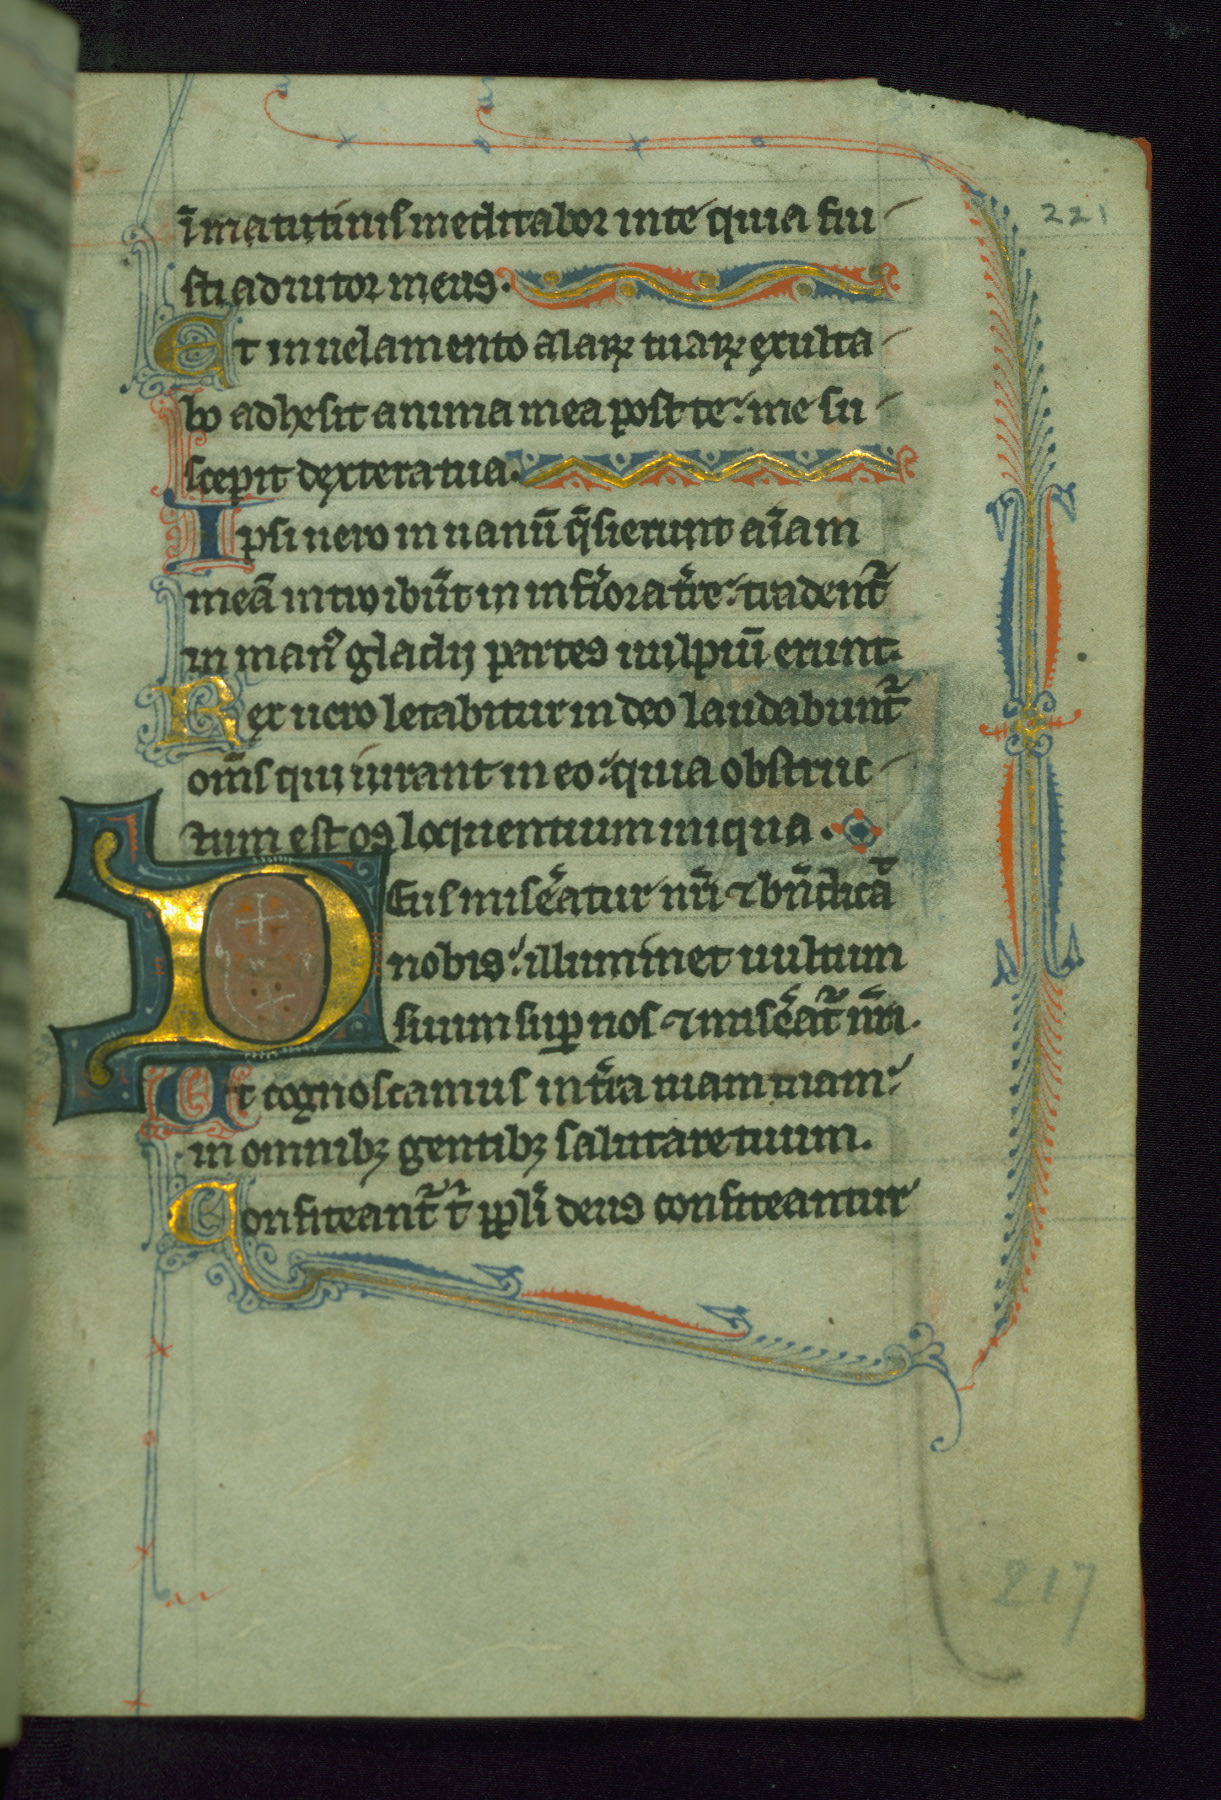 221
ī matutinis meditabor in te quia fui
sti adiutor meus.
Et in uelamento alaꝝ tuaꝝ exulta
bo adhesit anima mea post te: me su
scepit dextera tua.
Ipsi uero in uanū q̄sierunt aīam
meā introibūt in inferiora tr̄re: tradent᷑
in man᷒ gladij partes uulpiū erunt.
Rex uero letabitur in deo laudabunt᷑
om̄s qui iurant in eo: quia obstruc
tum est os loquentium iniqua.
Deus miseātur nr̄i ⁊ bn̄dicā
nobis: illuminet uultum
suum suꝑ nos ⁊ miseāt᷑ nr̄i.
Ut cognoscamus in tr̄ra uiam tuam:
in omnibꝫ gentibꝫ salutare tuum.
Confiteant᷑ t᷑ ppl̄i deus confiteantur
217